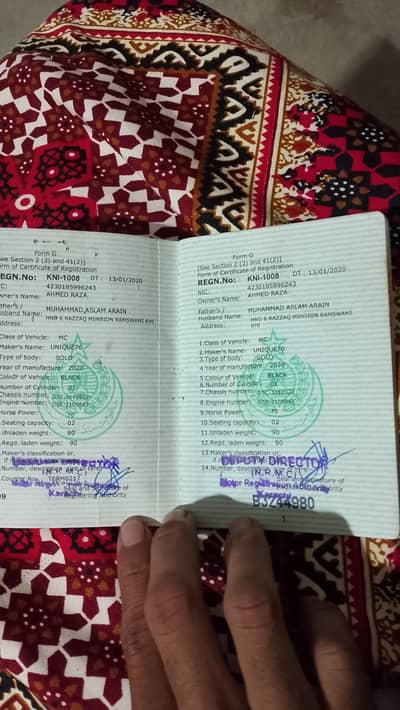 Form G
[See Section 2 (2) and 41(2)]
Form of Certificate of Registration
REGN.No: KNI-1008 DT : 13/01/2020
NIC: 4230195996243
Owner's Name: AHMED RAZA
Father's /
Husband Name: MUHAMMAD ASLAM ARAIN
Address: HNO 6 RAZZAQ MSNSION RAMSWAMI KHI
Class of Vehicle: MC
Maker's Name: UNIQUE70
Type of body: SOLO
Year of manufacture: 2020
Colour of Vehicle: BLACK
Number of Cylinder: 01
Chassis number:
Engine number:
Horse Power: 70
Seating capacity: 02
Unladen weight: 80
Regd. laden weight: 90
Maker's classification or,
DEPUTY DIRECTOR
(N.R.M.C)
Motor Registration Authority
Karachi
Form G
[See Section 2 (2) and 41(2)]
Form of Certificate of Registration
REGN.No: KNI-1008 DT : 13/01/2020
NIC: 4230195996243
Owner's Name: AHMED RAZA
Father's /
Husband Name: MUHAMMAD ASLAM ARAIN
Address: HNO 6 RAZZAQ MSNSION RAMSWAMI
KHI
1.Class of Vehicle: MC
2.Maker's Name: UNIQUE70
3.Type of body: SOLO
4.Year of manufacture: 2020
5.Colour of Vehicle: BLACK
6.Number of Cylinder: 01
7.Chassis number:
8.Engine number:
9.Horse Power: 70
10.Seating capacity: 02
11.Unladen weight: 80
12.Regd. laden weight: 90
13.Maker's classification or,
DEPUTY DIRECTOR
(N.R.M.C)
Motor Registration Authority
Karachi
BJ244980
1